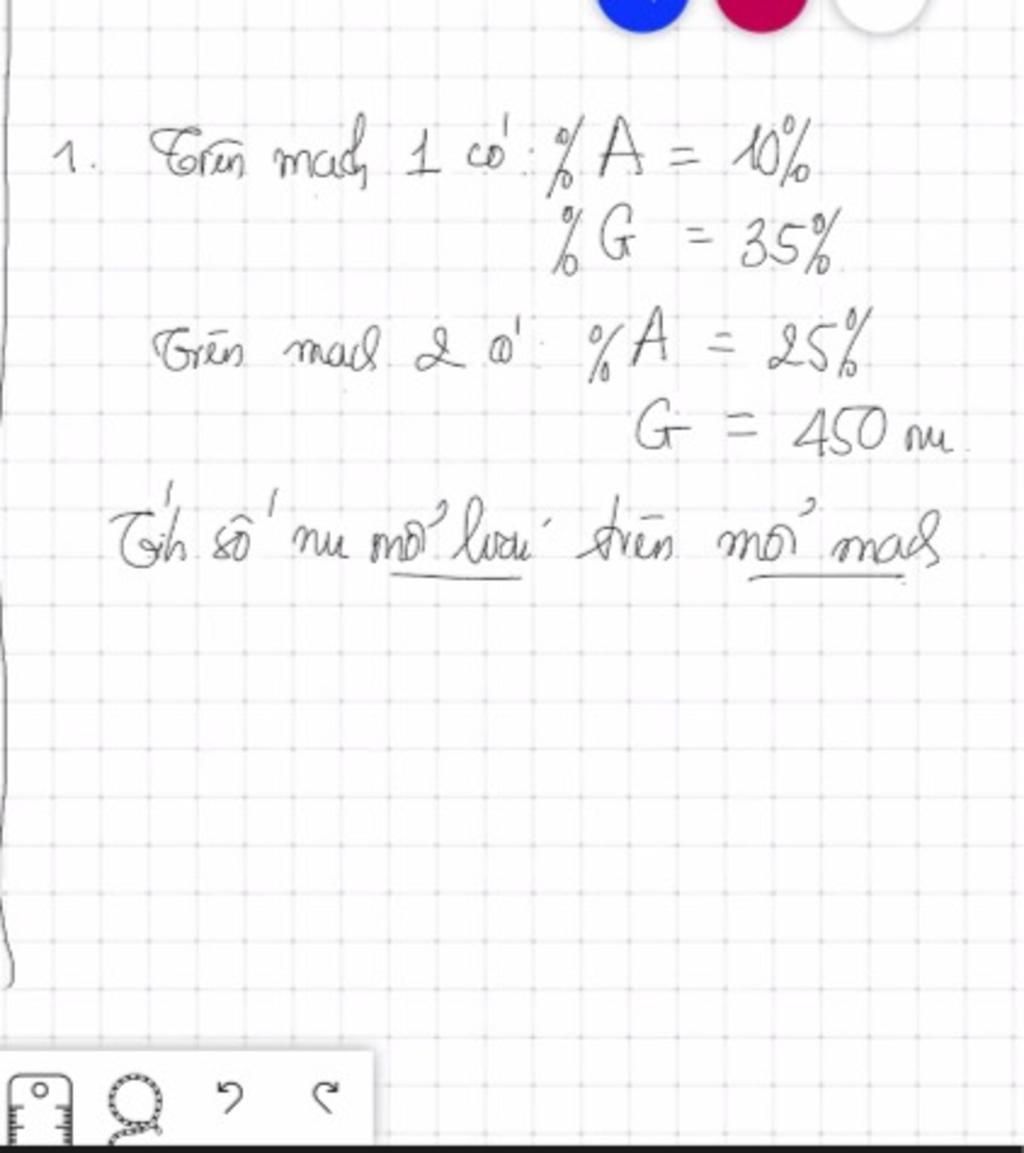 1. Trên mạch 1 có: %A = 10%
%G = 35%
Trên mạch 2 có: %A = 25%
G = 450 nu.
Tính số nu mỗi loại trên mỗi mạch